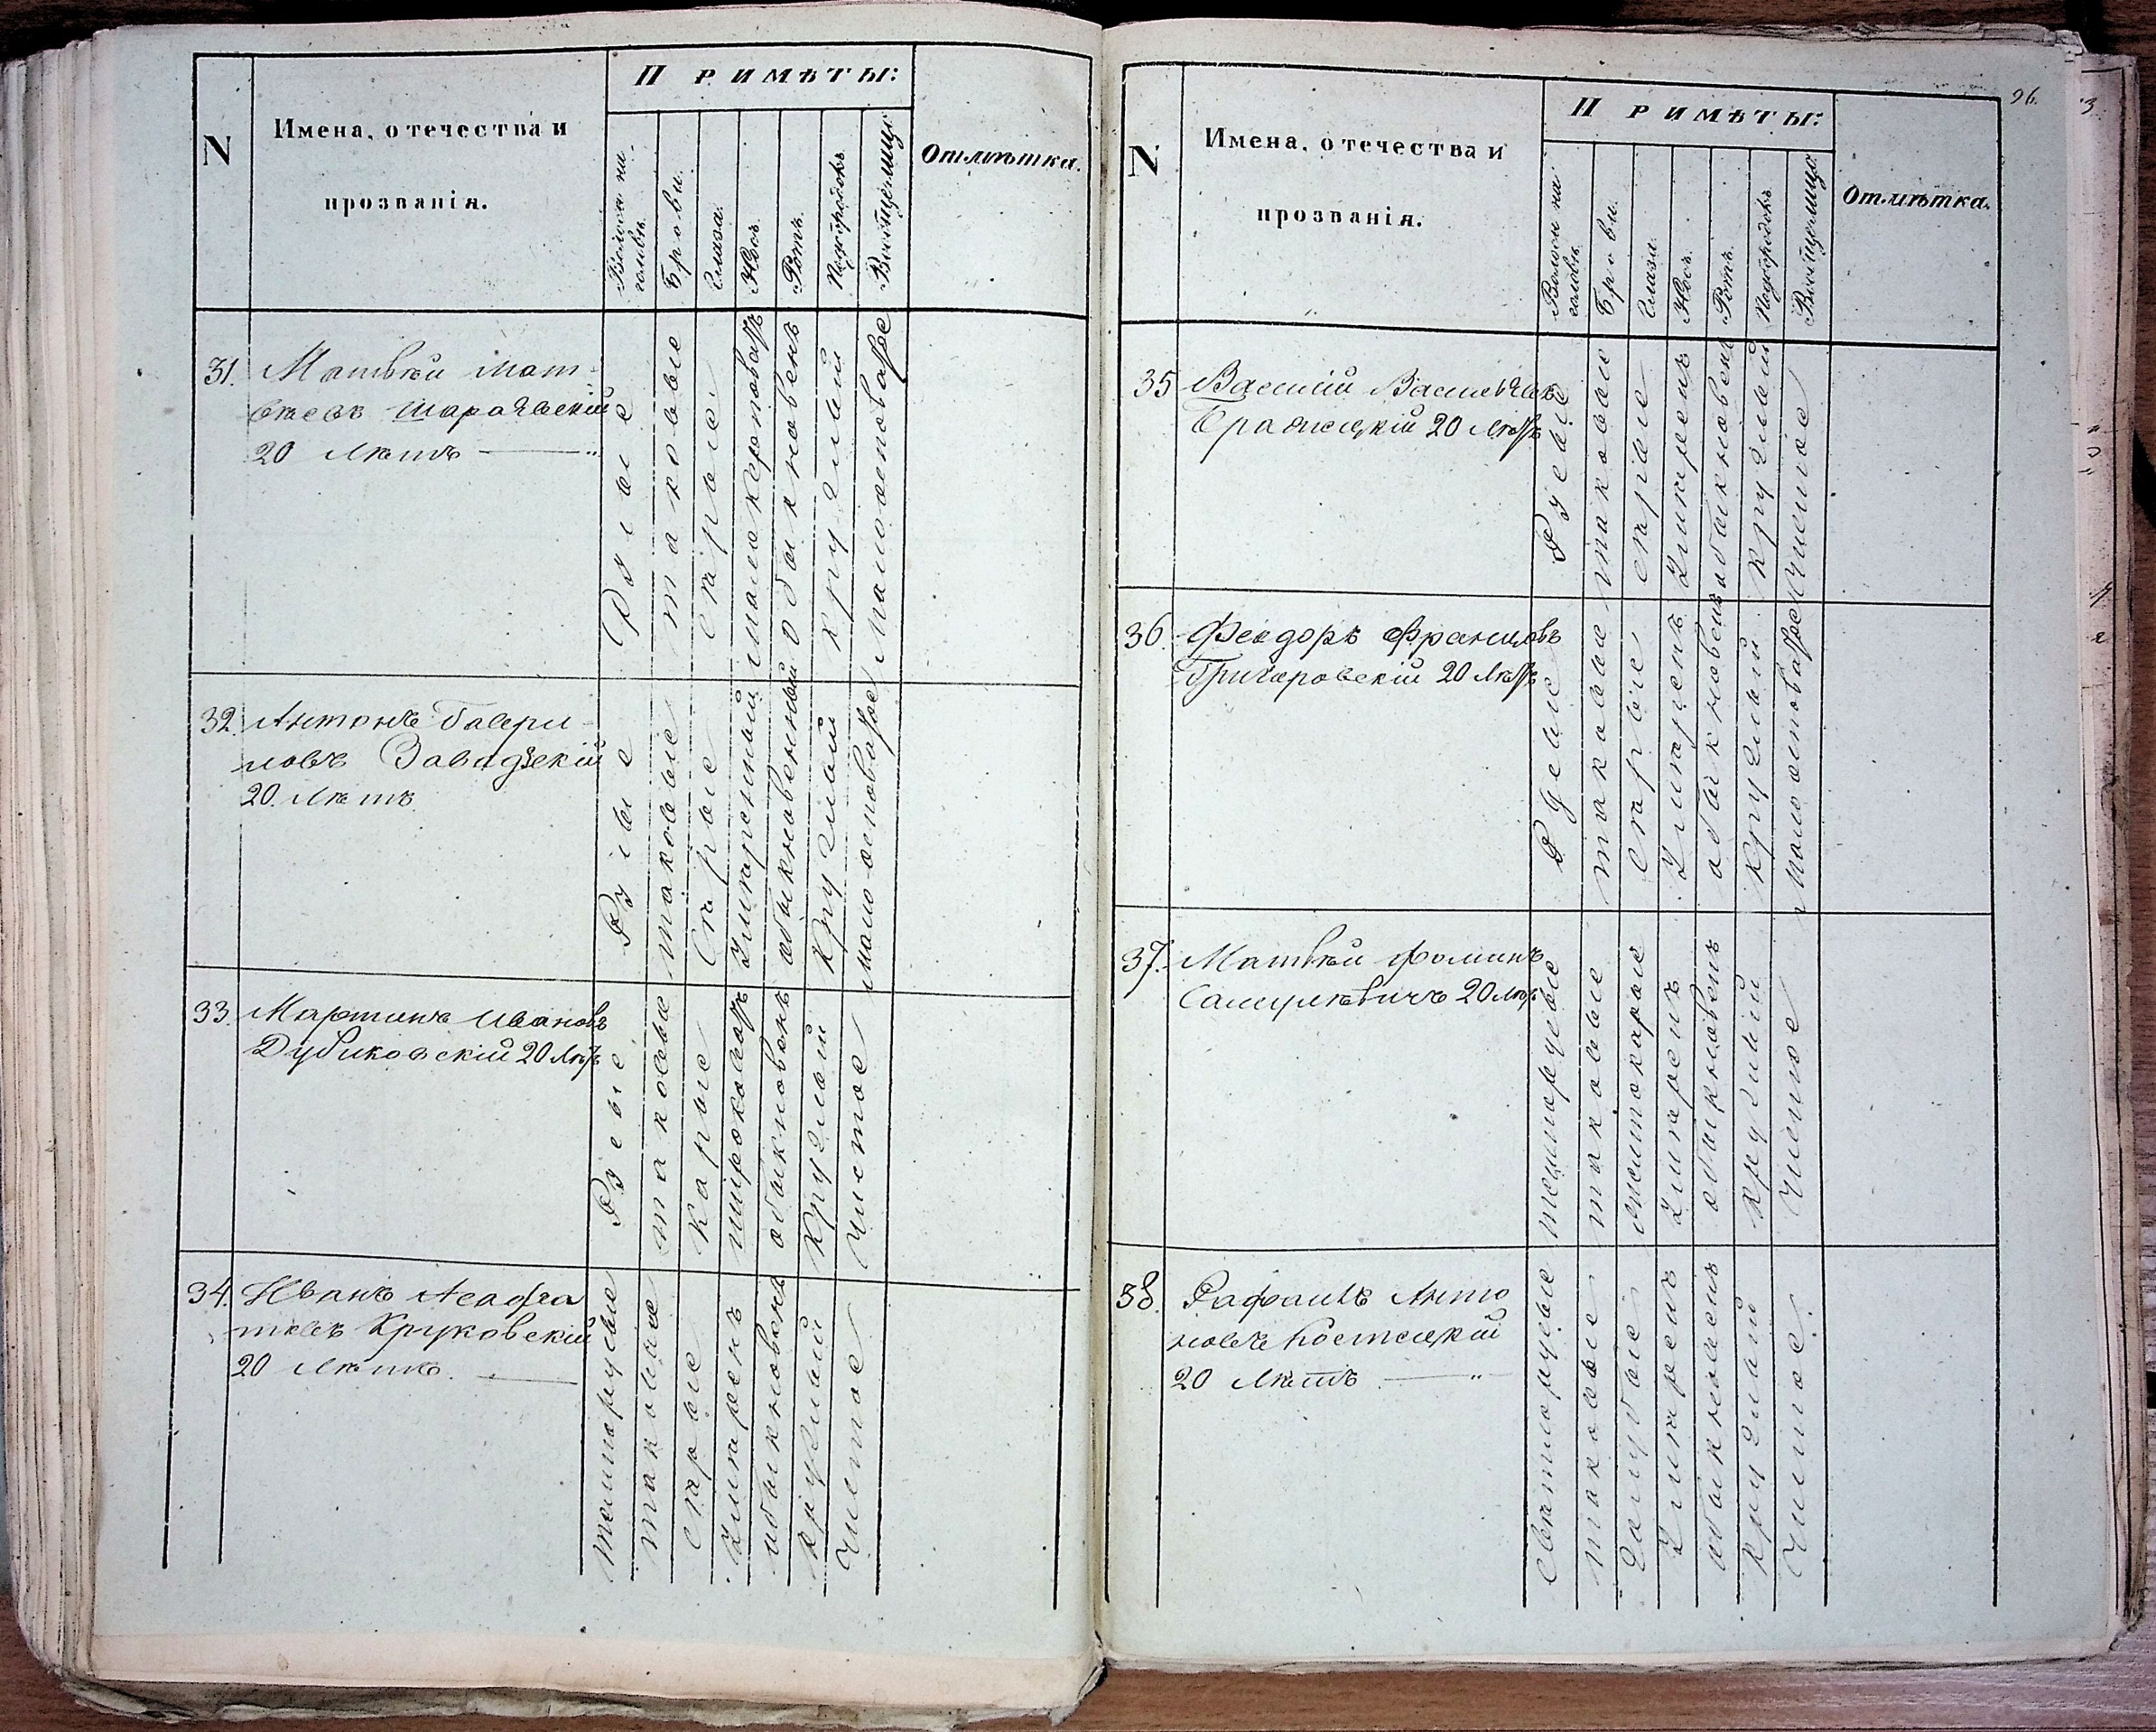 N
Имена, отечества и
прозванія.
Примѣты:
Волоса на
головѣ.
Брови.
Глаза.
Носъ.
Ротъ.
Подбородокъ
Вообще лицо
Отмѣтка.
31. Матвѣй Мат-
вѣевъ
20 Лѣтъ
Русые
таковые
сѣрые
обыкновенъ
круглый
Малоосповатое
32. Антонъ Гаври-
ловъ Завадзскій
20 Лѣтъ
Русые
таковые
Сѣрые
Умѣренный
обыкновенный
Круглый
мало осповатое
33. Мартинъ Ивановъ
Дубиковскій 20 Лѣтъ
Русые
таковые
Карые
широковатъ
обыкновенъ
Круглый
Чистое
34. Иванъ
Круковскій
20 Лѣтъ
темнорусые
таковые
сѣрые
Умѣренъ
обыкновенъ
круглый
Чистое
96.
N
Имена, отечества и
прозванія.
Примѣты:
Волоса на
головѣ.
Брови.
Глаза.
Носъ.
Ротъ.
Подбородокъ
Вообще лицо
Отмѣтка.
35 Василій Васильевъ
20 Лѣтъ
Русые
таковые
сѣрые
Умѣренъ
обыкновенъ
круглый
Чистое
36. Феодоръ Францовъ
20 Лѣтъ
Русые
таковые
сѣрые
Умѣренъ
обыкновенъ
круглый
Мало осповатое
37. Матвѣй Фоминъ
Самулевичъ 20 Лѣтъ
темнорусые
таковые
Умѣренъ
обыкновенъ
круглый
Чистое
38. Рафаилъ Анто
новъ Костецкій
20 Лѣтъ
Свѣтлорусые
таковые
Голубые
Умѣренъ
обыкновенъ
круглый
Чистое